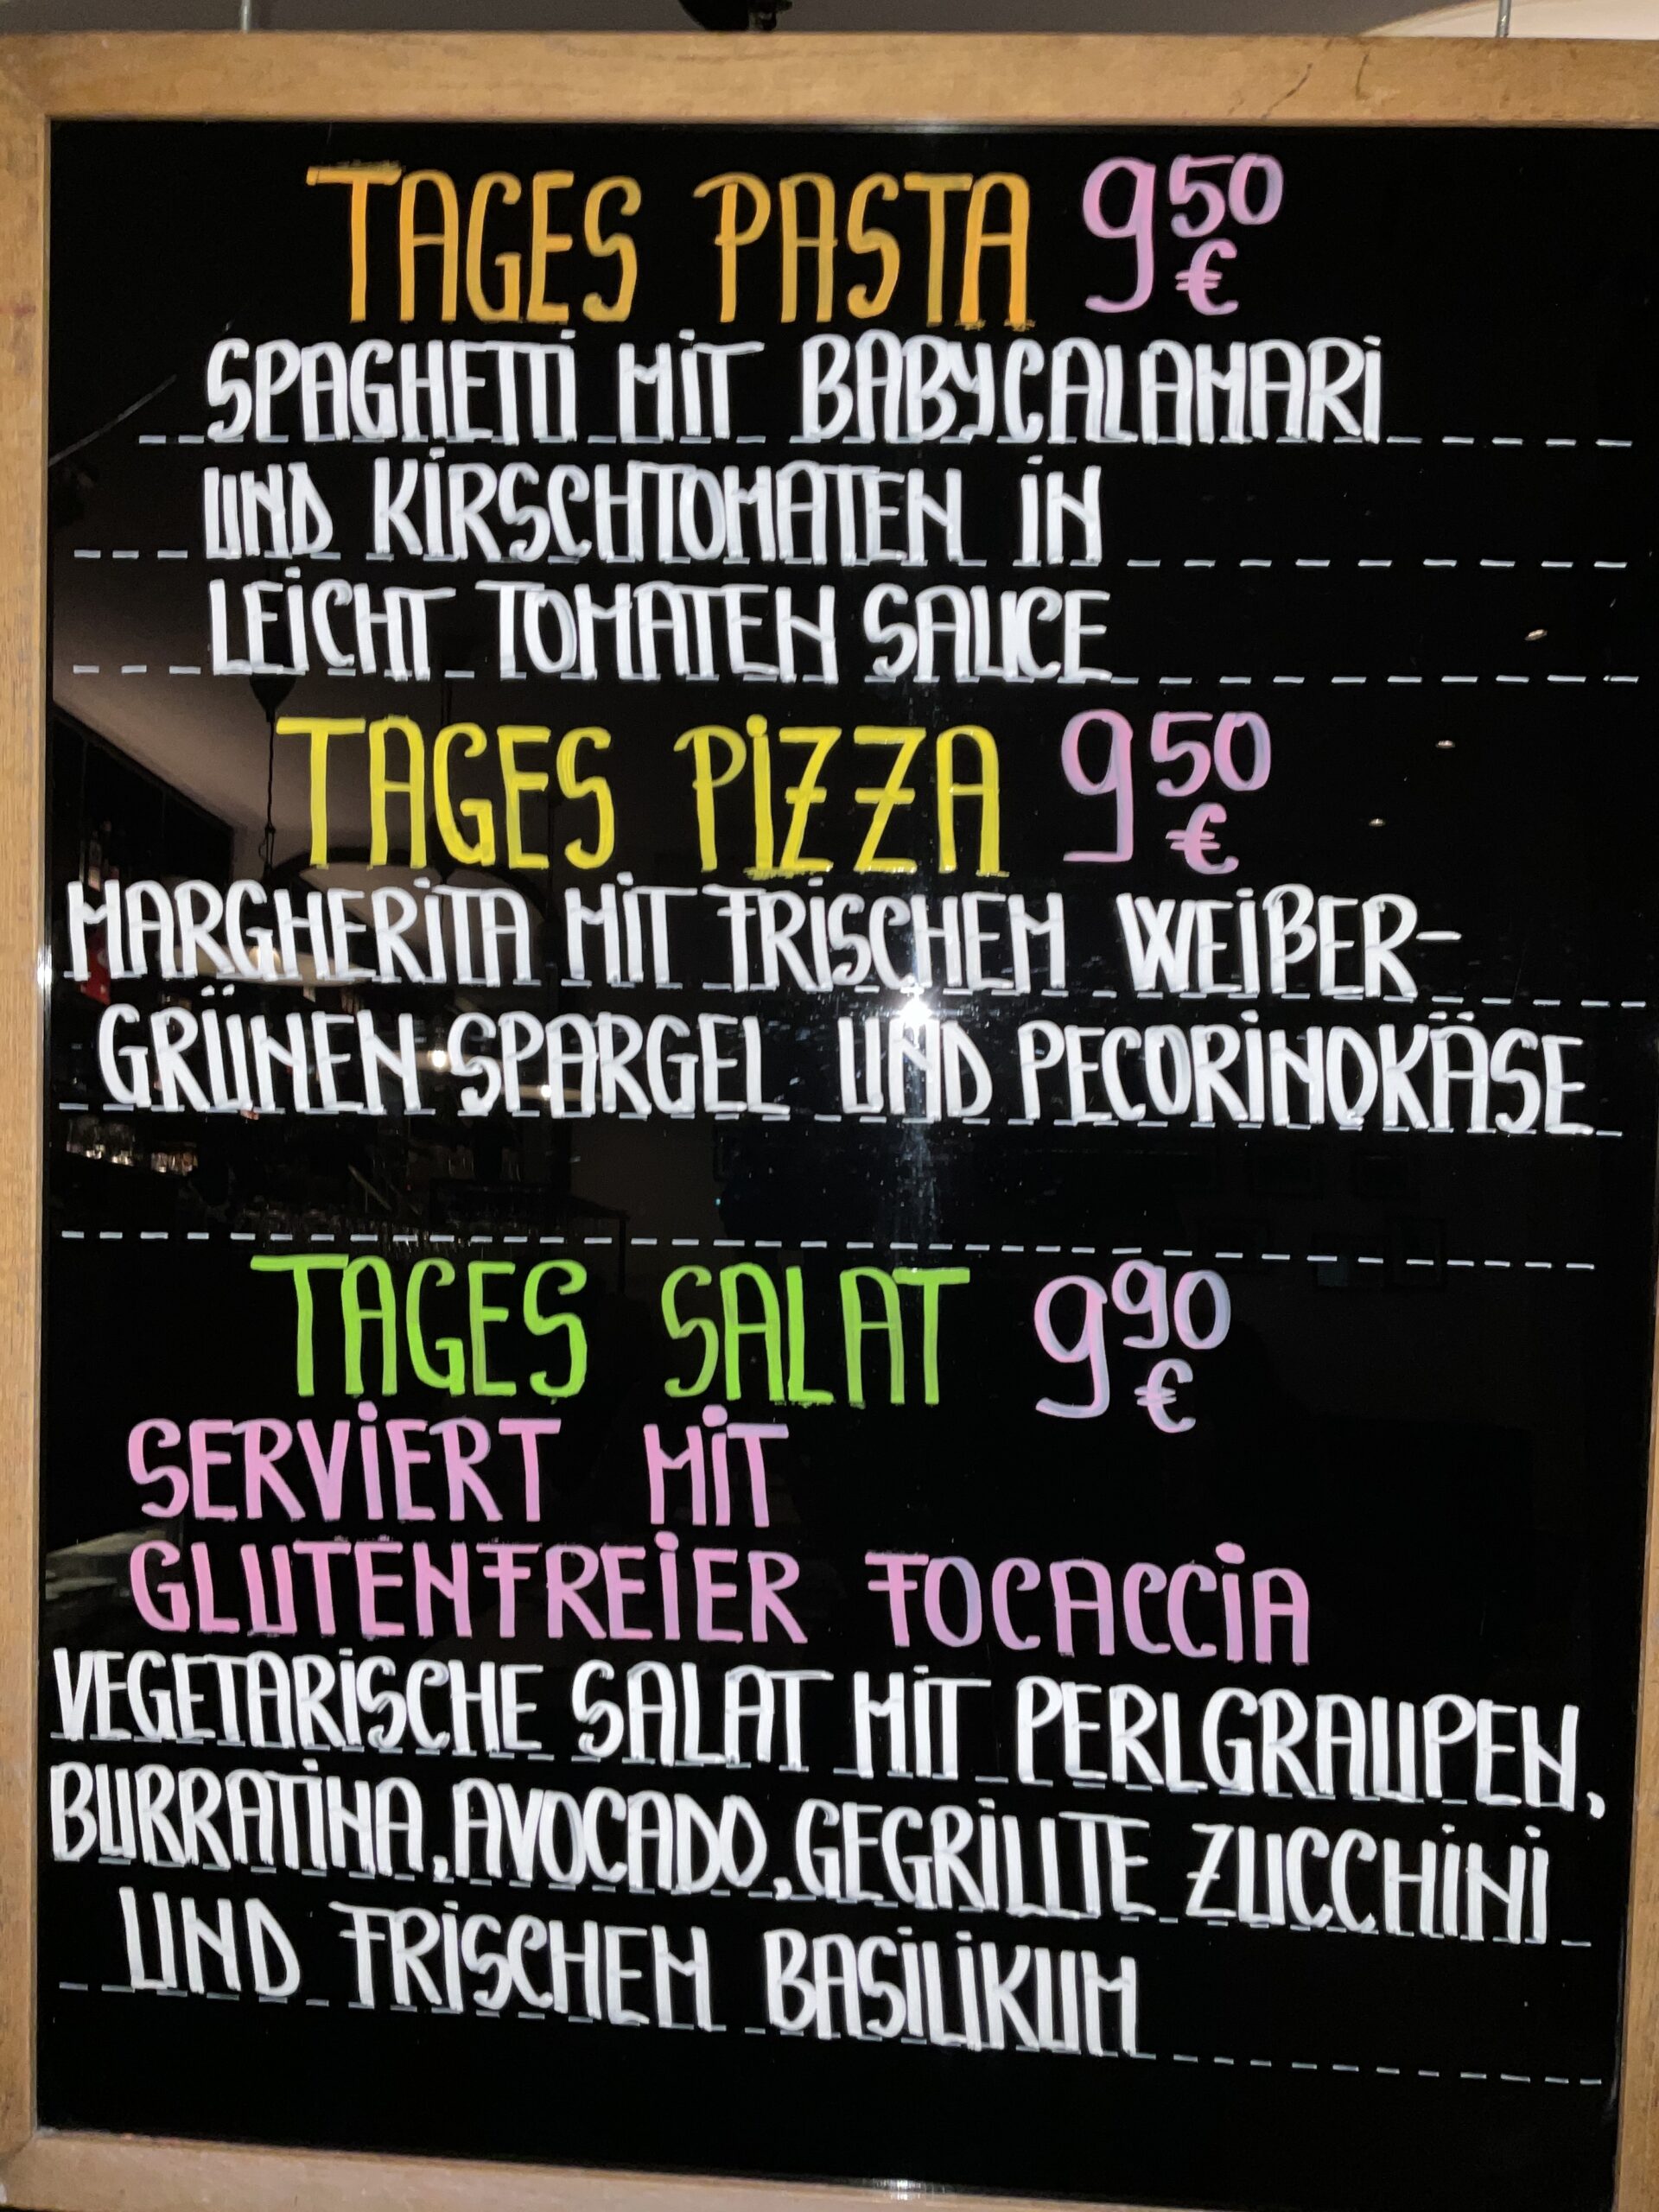 TAGES PASTA 9 50 €
SPAGHETTI MIT BABYCALAMARI
UND KIRSCHTOMATEN IN
LEICHT TOMATEN SAUCE
TAGES PIZZA 9 50 €
MARGHERITA MIT FRISCHEM WEIßER-
GRÜNEN SPARGEL UND PECORINOKÄSE
TAGES SALAT 9 90 €
SERVIERT MIT
GLUTENFREIER FOCACCIA
VEGETARISCHE SALAT MIT PERLGRAUPEN,
BURRATINA, AVOCADO, GEGRILLTE ZUCCHINI
UND FRISCHEM BASILIKUM